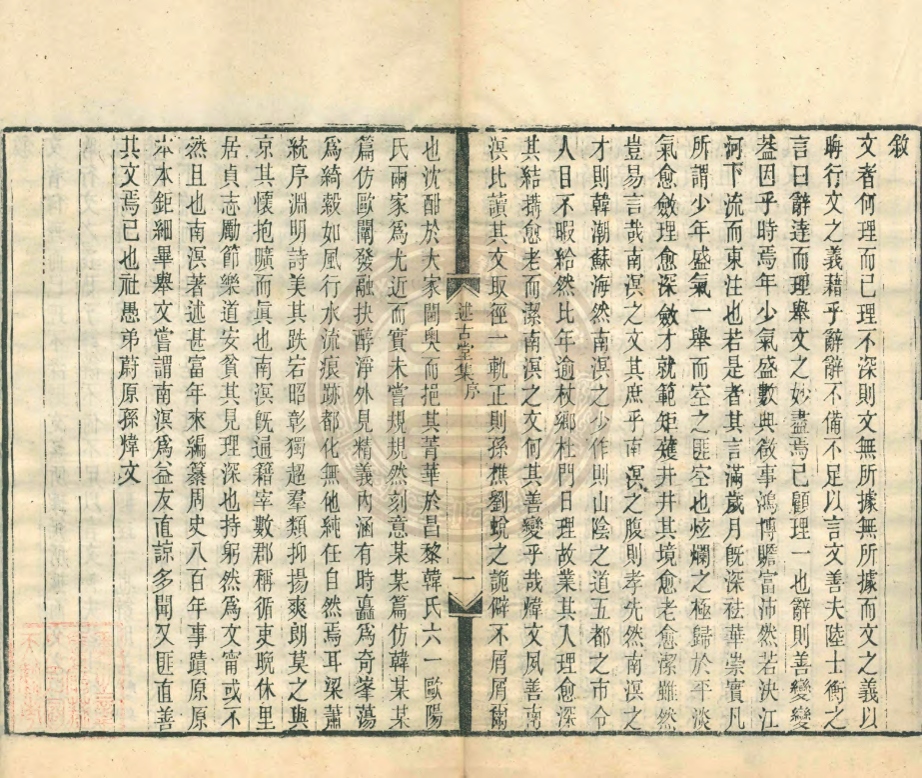 敘
文者何理而已理不深則文無所據無所據而文之義以
晦行文之義藉乎辭辭不備不足以言文善夫陸士衡之
言曰辭達而理舉文之妙盡焉已顧理一也辭則善變變
蓋因乎時焉年少氣盛數典徵事鴻博贍富沛然若決江
河下流而東注也若是者其言滿歲月旣深祛華崇實凡
所謂少年盛氣一舉而空之匪空也炫爛之極歸於平淡
氣愈斂理愈深斂才就範矩矱井井其境愈老愈潔雖然
豈易言哉南溟之文其庶乎南溟之腹則孝先然南溟之
才則韓潮蘇海然南溟之少作則山陰之道五都之市令
人目不暇給然比年逾杖鄉杜門日理故業其人理愈深
其結搆愈老而潔南溟之文何其善變乎哉煒文夙善南
溟比讀其文取徑一軌正則孫樵劉蛻之詭僻不屑屑爾
述古堂集序
一
也沈酣於大家閫奧而挹其菁華於昌黎韓氏六一歐陽
氏兩家爲尤近而實未嘗規規然刻意某某篇仿韓某某
篇仿歐闡發融抉醇淨外見精義內涵有時矗爲奇峯蕩
爲綺縠如風行水流痕跡都化無他純任自然焉耳梁蕭
統序淵明詩美其跌宕昭彰獨超羣類抑揚爽朗莫之與
京其懷抱曠而眞也南溟旣通籍宰數郡稱循吏晩休里
居貞志勵節樂道安貧其見理深也持躬然爲文甯或不
然且也南溟著述甚富年來編纂周史八百年事蹟原原
本本鉅細畢舉文嘗謂南溟爲益友直諒多聞又匪直善
其文焉已也社愚弟蔚原孫煒文